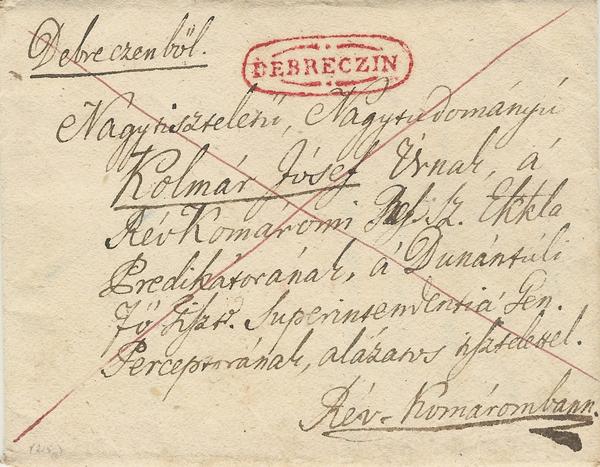 Debreczenből.
DEBRECZIN
Nagytiszteletű, Nagytudományú
Kolmár Jósef Úrnak, á
RévKomáromi Sz. Ekkla
Predikátorának, á Dunántúli
Fő Tiszt. Superintendentiá Gen.
Perceptorának, alázatos tisztelettel.
Rév-Komárombann.